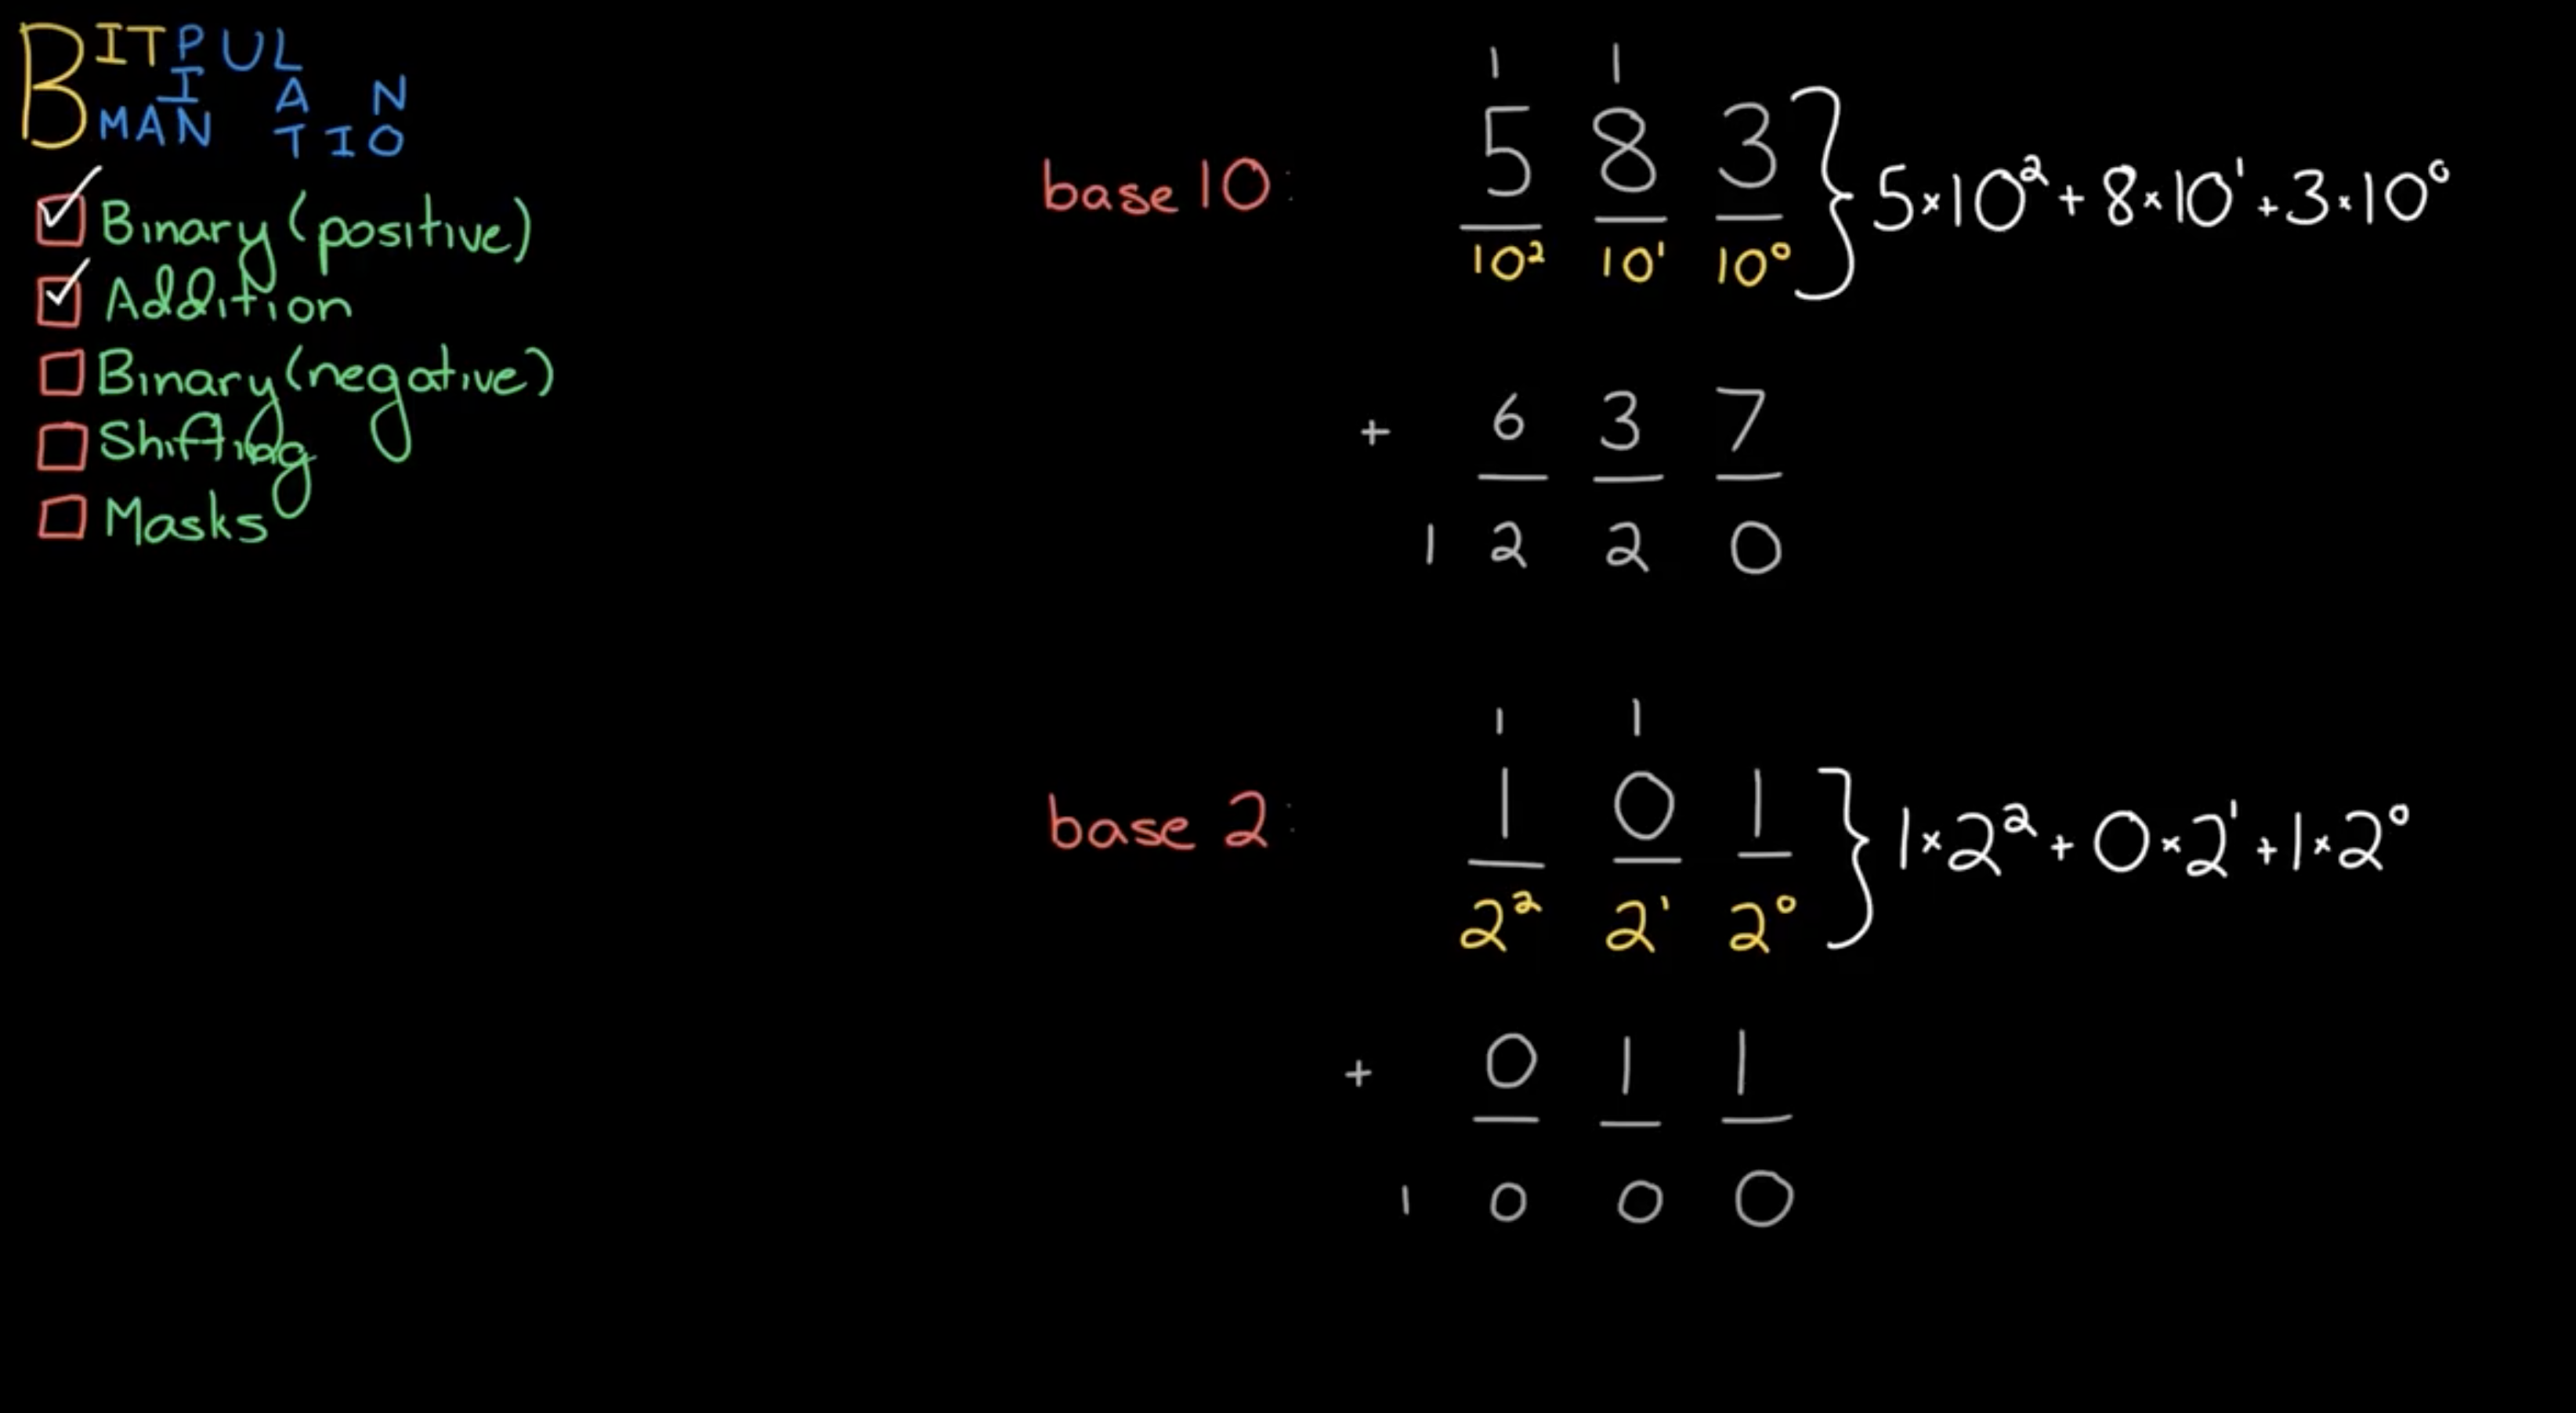 BIT MANIPULATION
Binary (positive)
Addition
Binary (negative)
Shifting
Masks
1 1
base 10: 5 8 3 } 5×10² + 8×10¹ + 3×10⁰
10² 10¹ 10⁰
+ 6 3 7
1 2 2 0
1 1
base 2: 1 0 1 } 1×2² + 0×2¹ + 1×2⁰
2² 2¹ 2⁰
+ 0 1 1
1 0 0 0